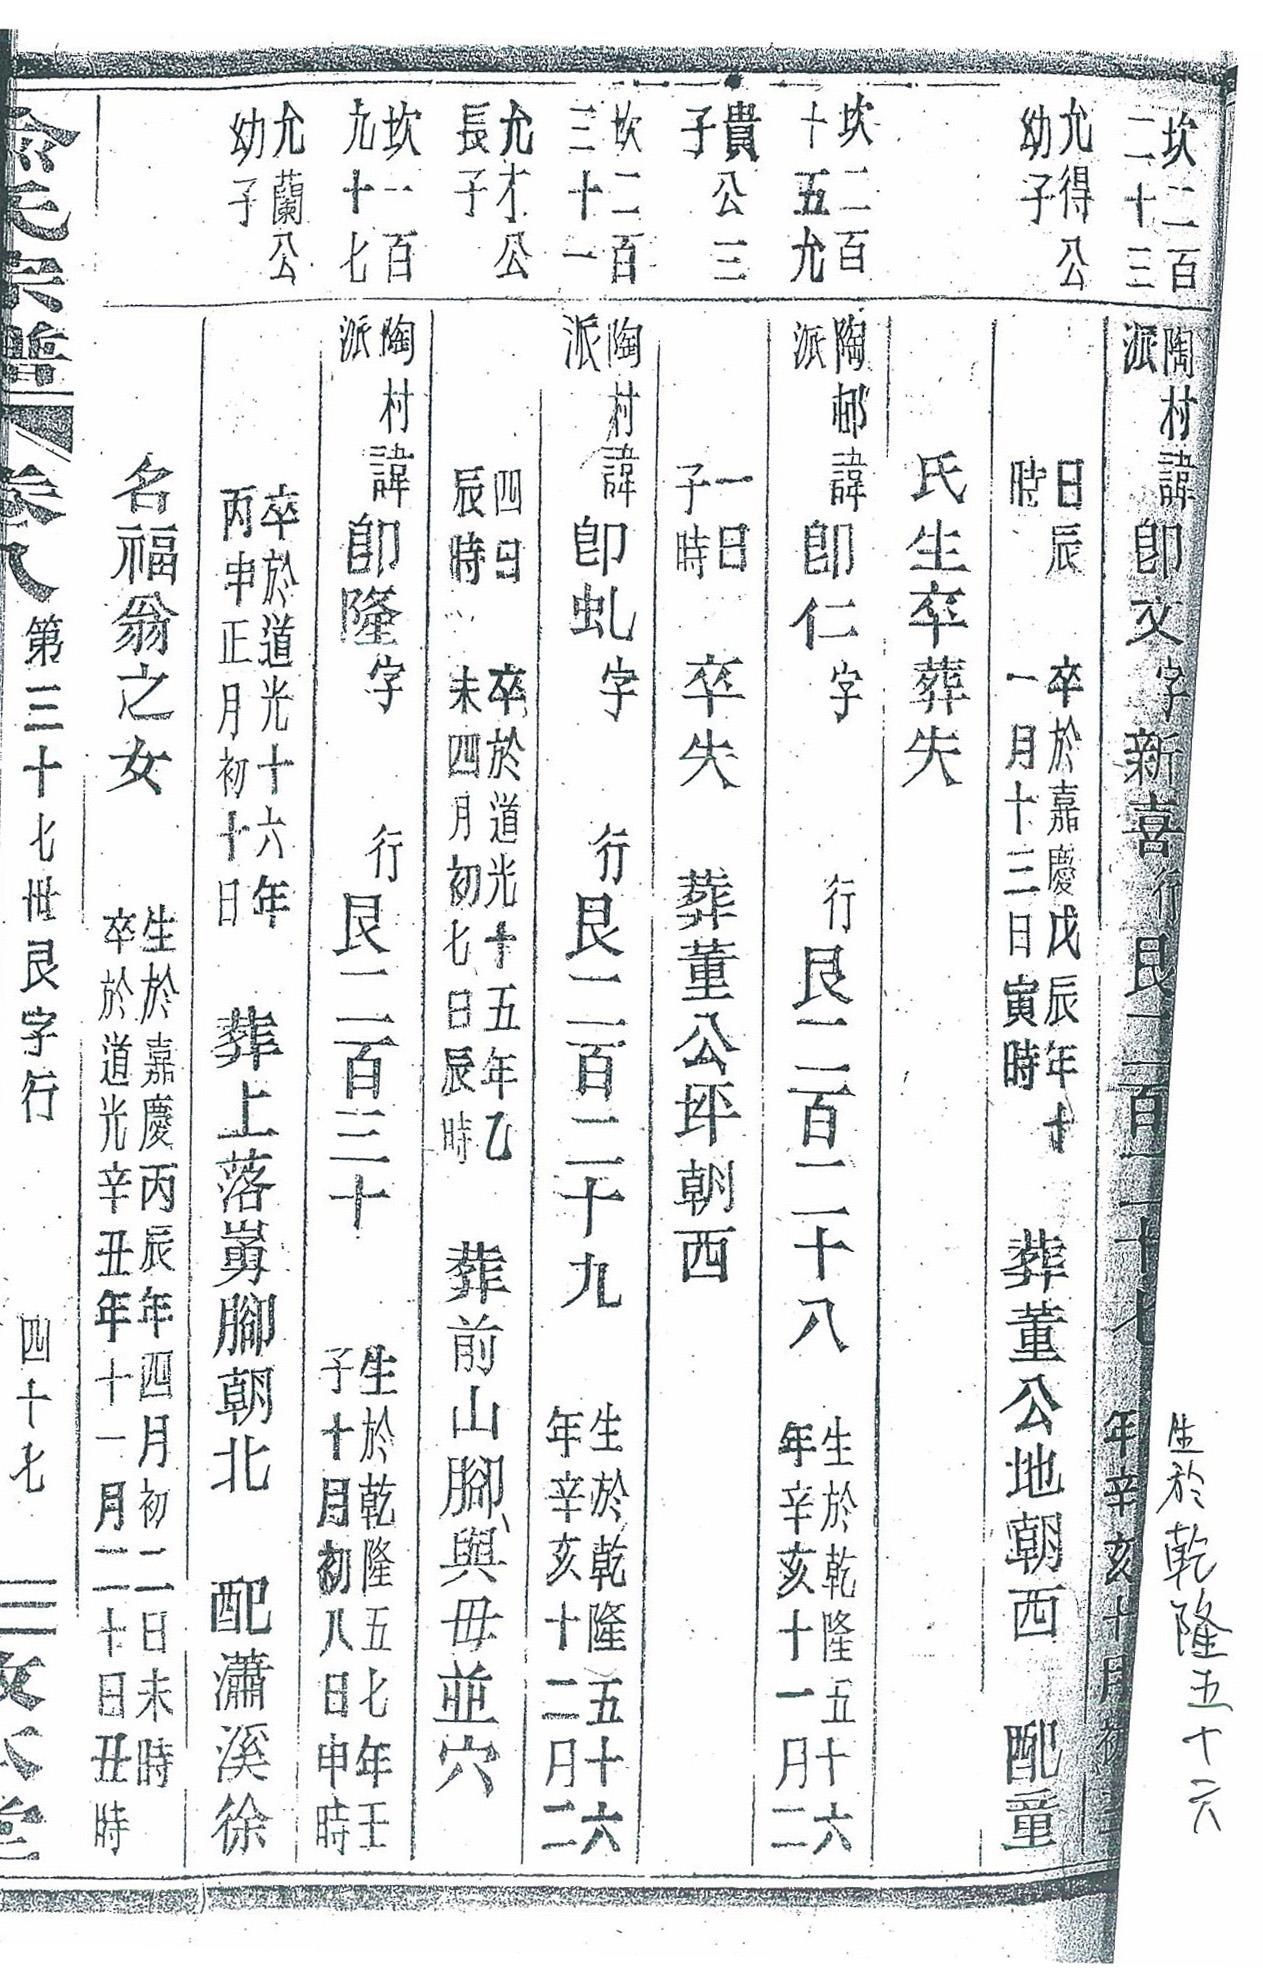 生於乾隆五十六
坎二百
二十三
陶村
派
諱即文字新喜行艮二百二十七
年辛亥十月初
允得公
幼子
日辰
時
卒於嘉慶戊辰年十
一月十三日寅時
葬董公地朝西 配童
氏生卒葬失
坎二百
十五允
陶邨
派
諱即仁字 行艮二百二十八
生於乾隆五十六
年辛亥十一月二
貴公三
子
一日
子時
卒失 葬董公坪朝西
坎二百
三十一
陶村
派
諱即虬字 行艮二百二十九
生於乾隆五十六
年辛亥十二月二
允才公
長子
四日
辰時
卒於道光十五年乙
未四月初七日辰時
葬前山腳與母並穴
坎一百
九十七
陶村
派
諱即隆字 行艮二百三十
生於乾隆五七年壬
子十月初八日申時
允蘭公
幼子
卒於道光十六年
丙申正月初十日
葬上落嶌腳朝北 配瀟溪徐
名福翁之女
生於嘉慶丙辰年四月初二日未時
卒於道光辛丑年十一月二十日丑時
氏宗譜 卷八 第三十七世艮字行 四十七 三